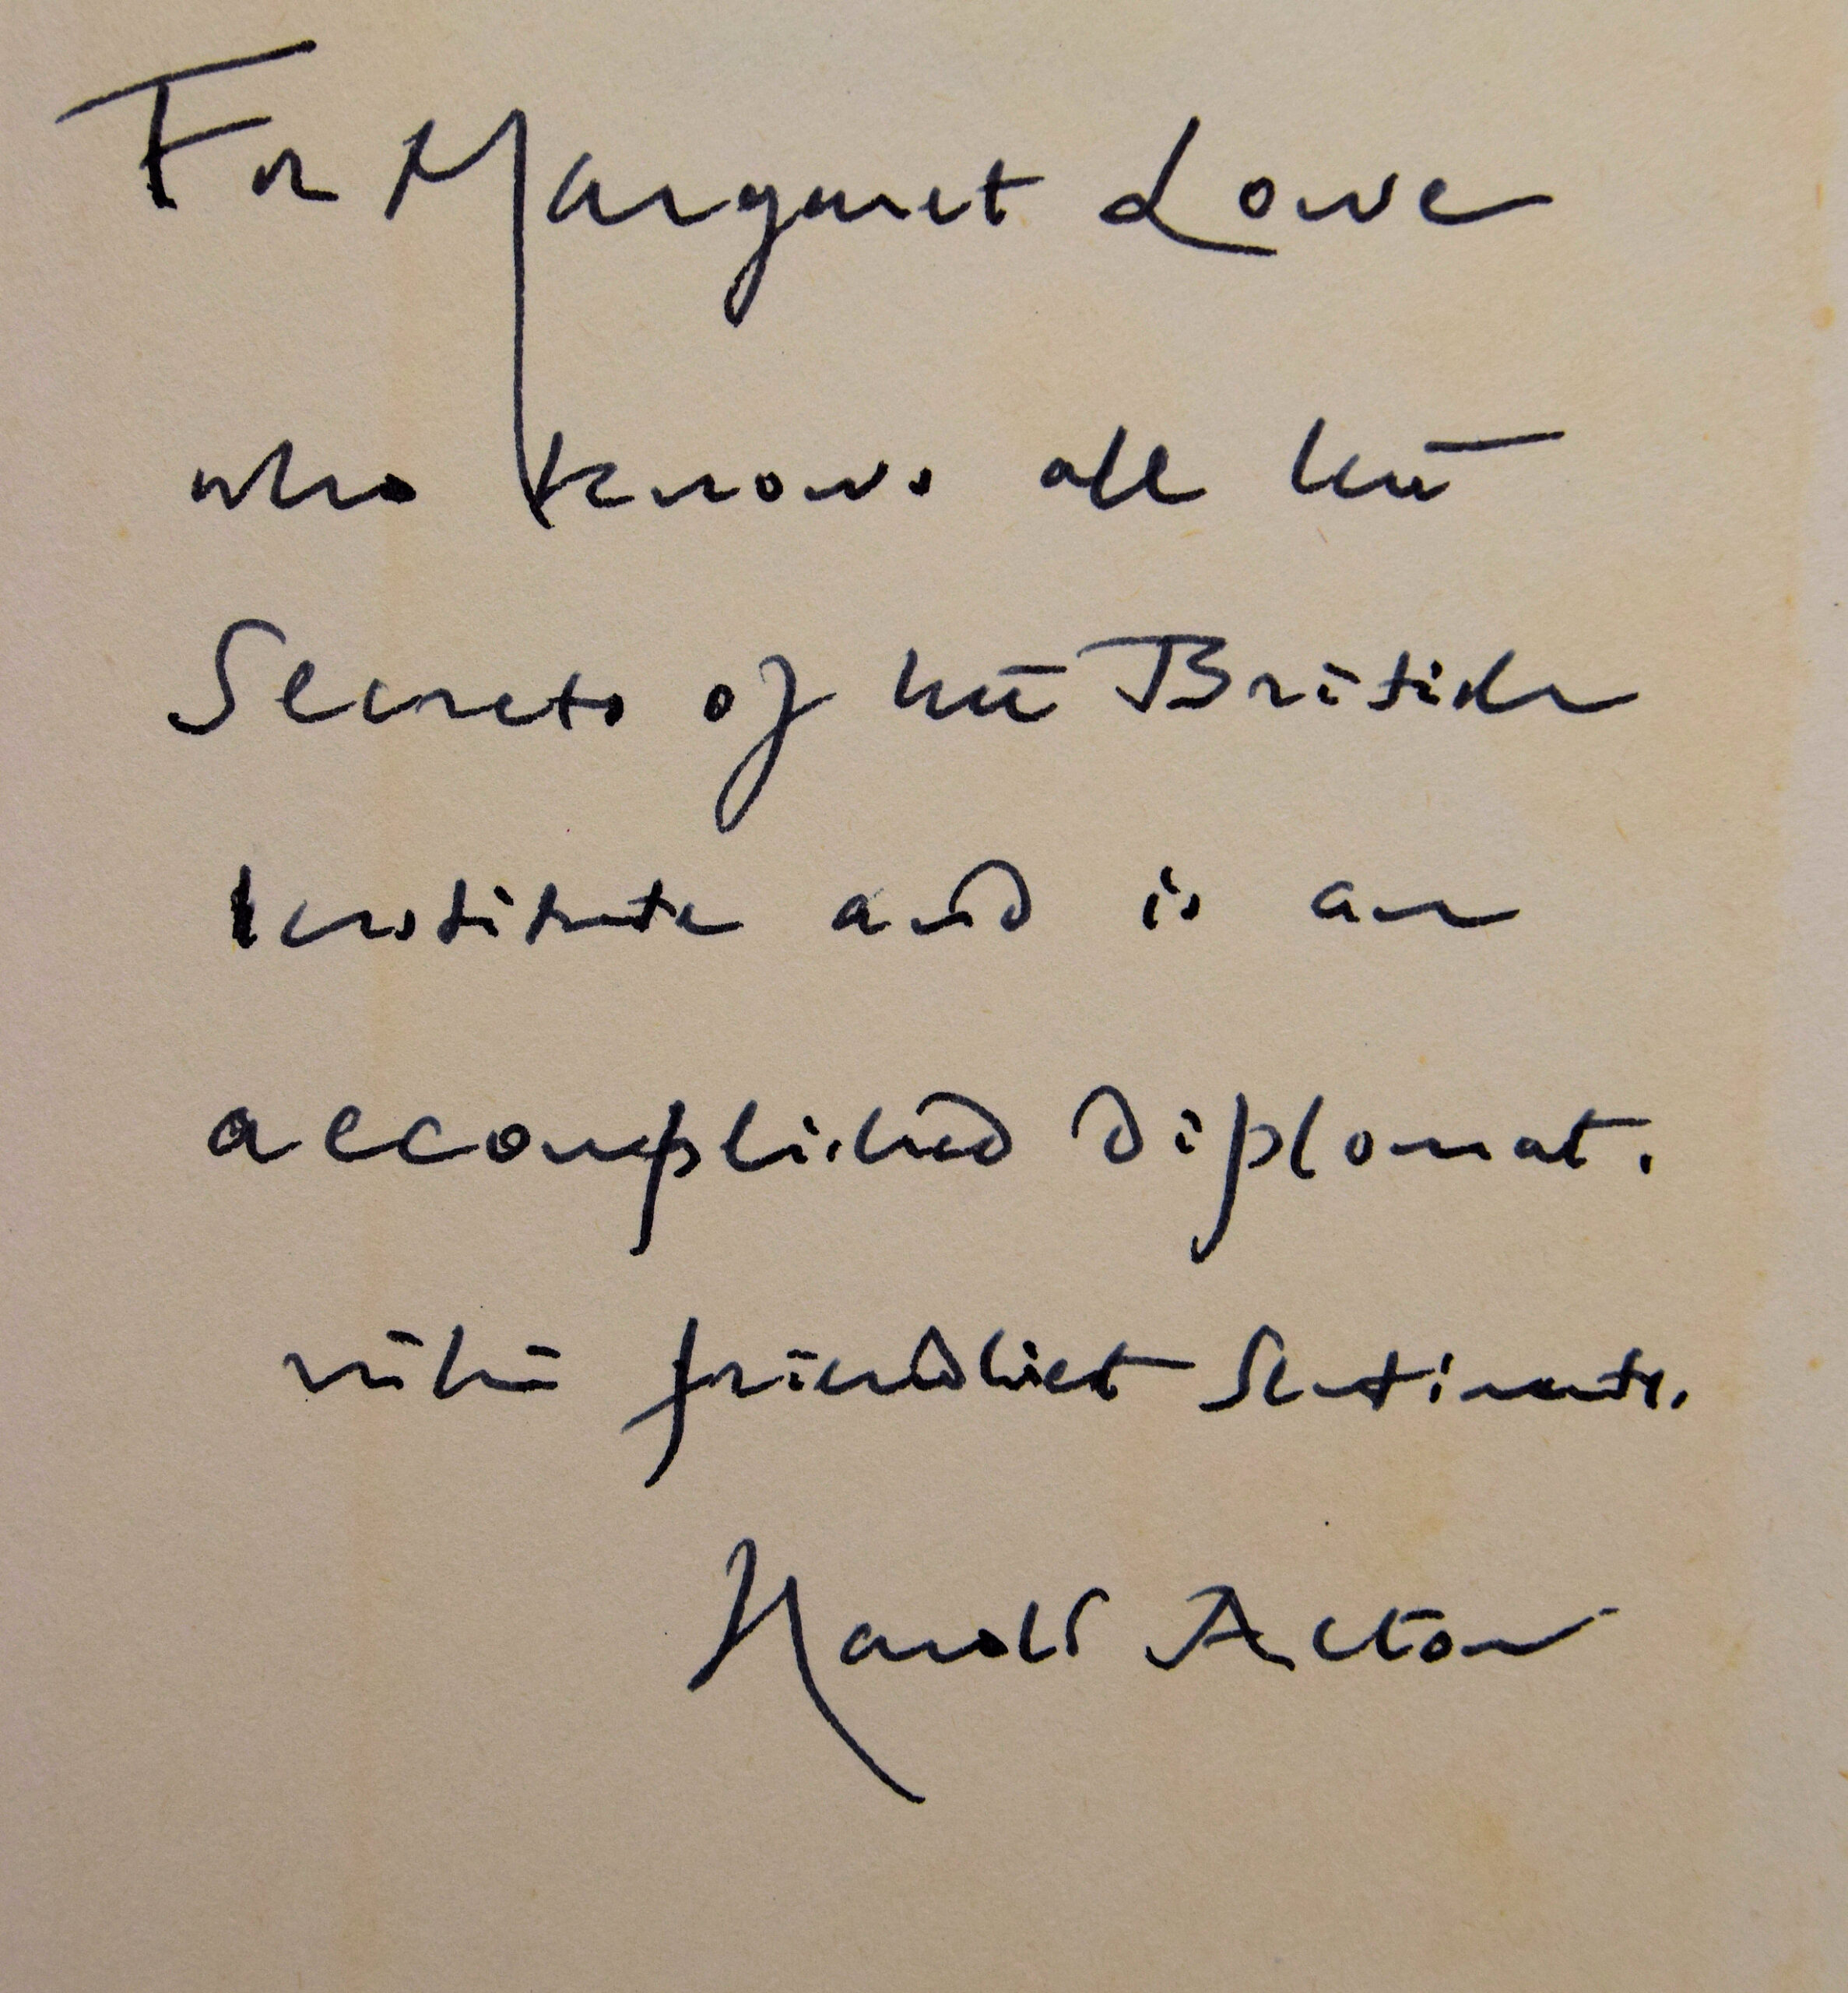 For Margaret Lowe
who knows all the
Secrets of the British
Institute and is an
accomplished diplomat.
with friendliest Sentiments.
Harold Acton